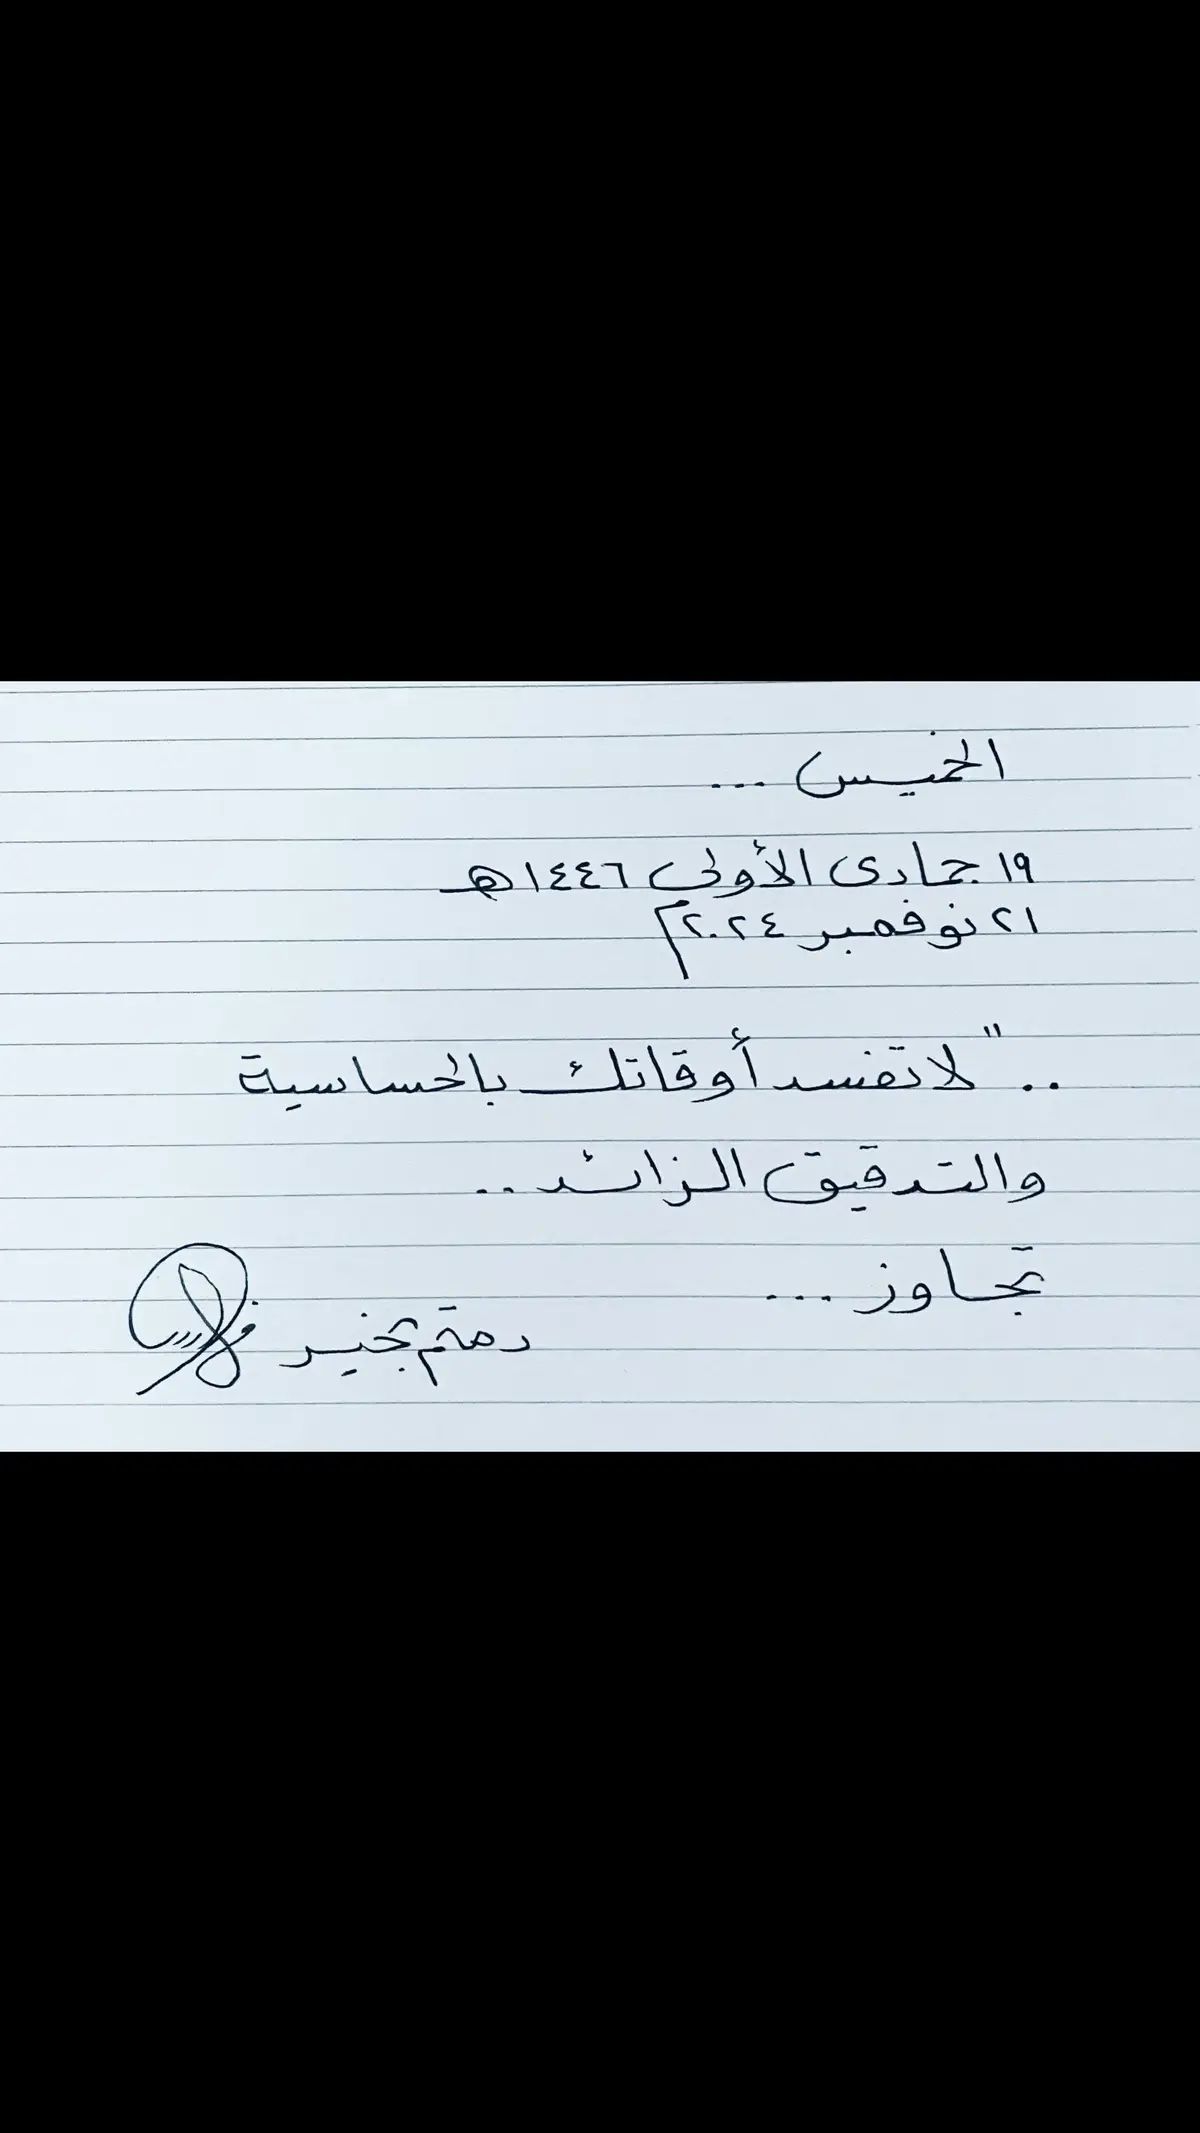 الخميس ...
١٩ جمادى الأولى ١٤٤٦هـ
٢١ نوفمبر ٢٠٢٤م
.. " لا تفسد أوقاتك بالحساسية
والتدقيق الزائد ..
تجاوز ...
دمتم بخير